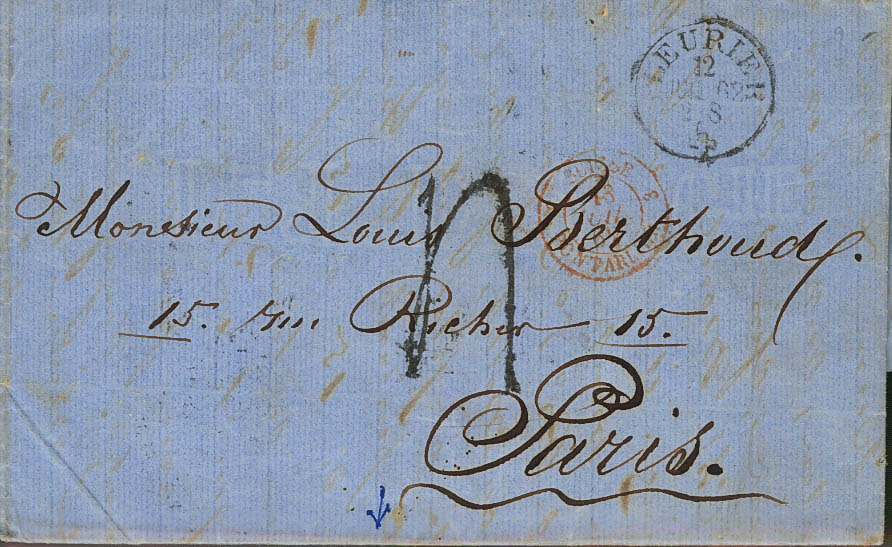 FLEURIER
12
JUIL 62
SUISSE
3
13
JUIL
PONTARLIER
Monsieur Louis Berthoud.
15. rue Richer 15.
Paris.